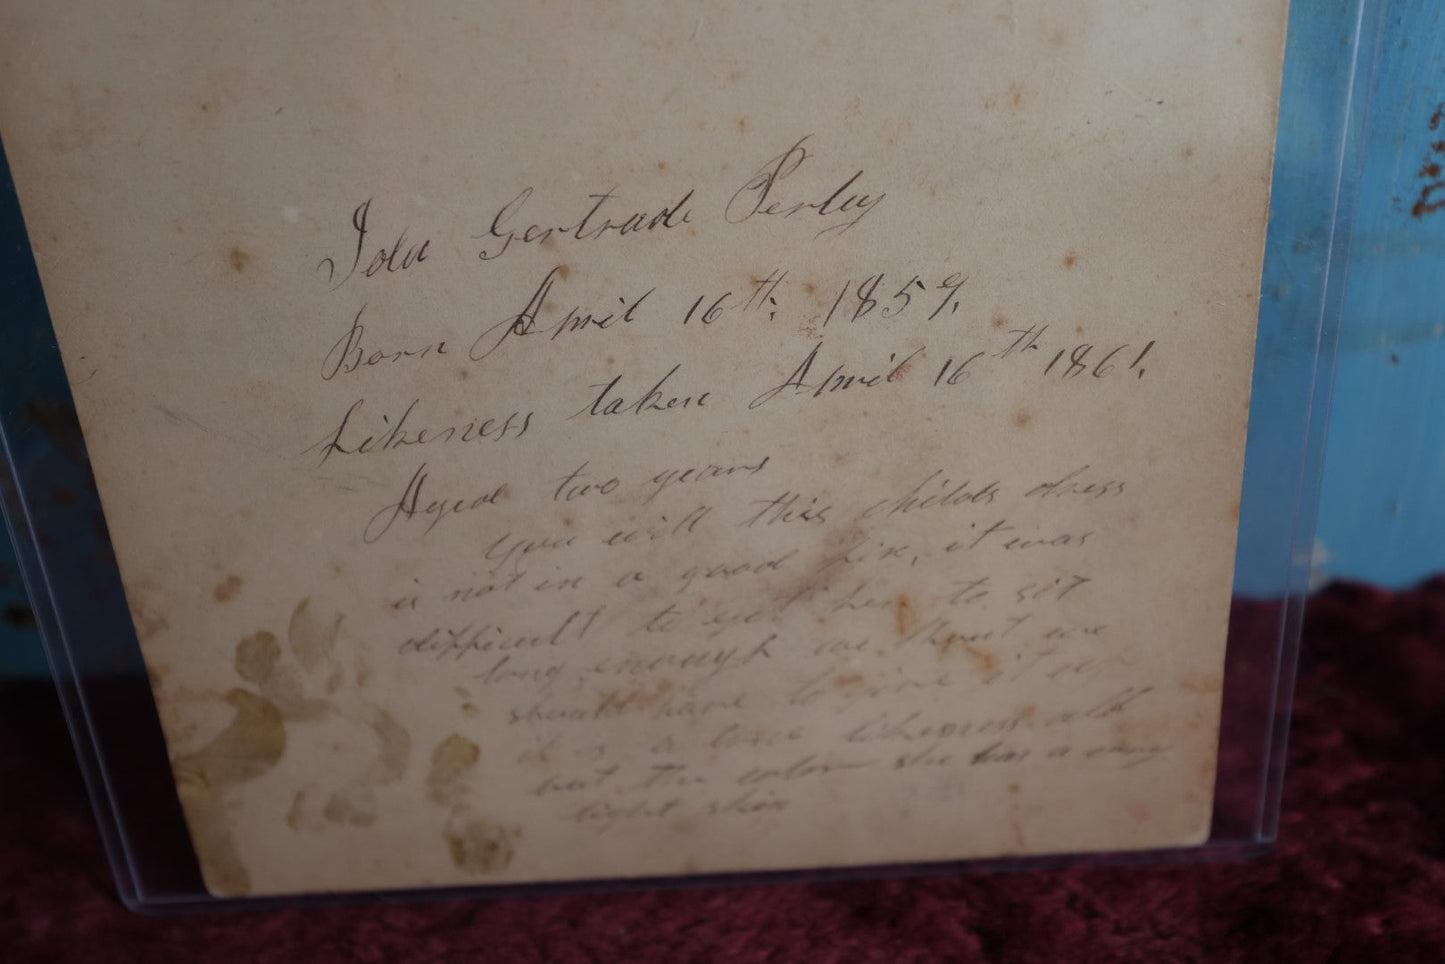 Ida Gertrude Perley
Born April 16th. 1859.
Likeness taken April 16th 1861.
Aged two years
You will this childs dress
is not in a good fix, it was
difficult to get her to sit
long enough we thout we
should have to give it up
it is a good likeness all
but the color she has a very
light skin